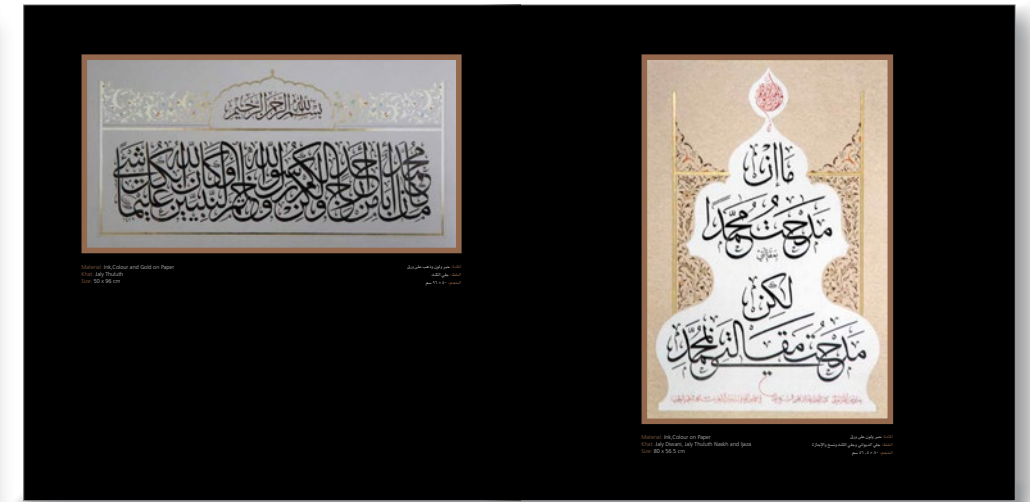 بسم الله الرحمن الرحيم
ما كان محمد أبا أحد من رجالكم ولكن رسول الله وخاتم النبيين وكان الله بكل شيء عليما
Material: Ink,Colour and Gold on Paper
Khat: Jaly Thuluth
Size: 50 x 96 cm
المادة: حبر ولون وذهب على ورق
الخط: جلي الثلث
الحجم: ٥٠ × ٩٦ سم
ما إن
مدحت محمدا
بمقالتي
لكن
مدحت مقالتي بمحمد
Material: Ink,Colour on Paper
Khat: Jaly Diwani, Jaly Thuluth Naskh and Ijaza
Size: 80 x 56.5 cm
المادة: حبر ولون على ورق
الخط: جلي الديواني وجلي الثلث ونسخ والإجازة